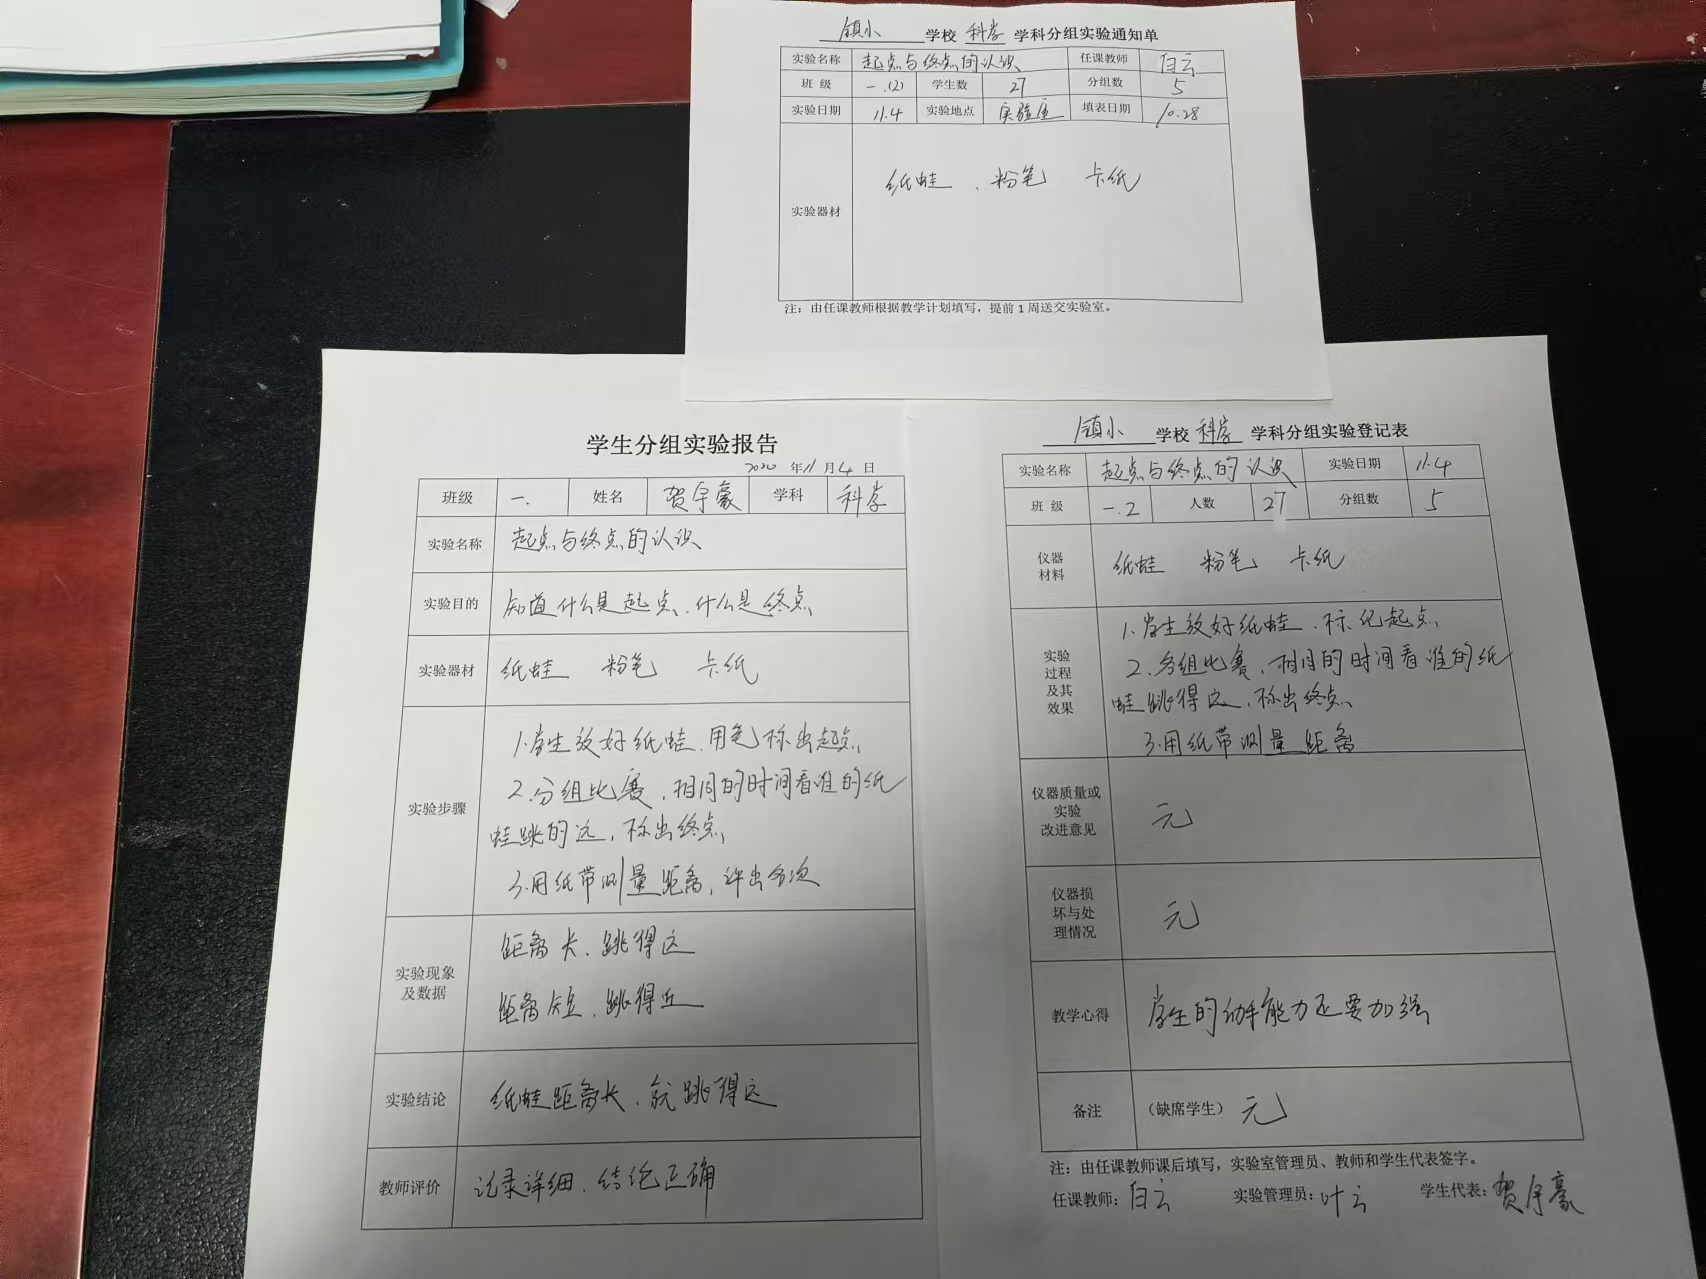 镇小 学校 科学 学科分组实验通知单
实验名称 起点与终点的认识 任课教师 白云
班 级 一.(2) 学生数 27 分组数 5
实验日期 11.4 实验地点 实验室 填表日期 10.28
实验器材 纸蛙、粉笔 卡纸
注：由任课教师根据教学计划填写，提前1周送交实验室。
学生分组实验报告
2020 年 11 月 4 日
班级 一. 姓名 贺宇豪 学科 科学
实验名称 起点与终点的认识
实验目的 知道什么是起点、什么是终点
实验器材 纸蛙 粉笔 卡纸
实验步骤
1.学生放好纸蛙、用笔标出起点
2.分组比赛，相同的时间看谁的纸
蛙跳的远，标出终点
3.用纸带测量距离，评出名次
实验现象
及数据
距离长、跳得远
距离短、跳得近
实验结论 纸蛙距离长、就跳得远
教师评价 记录详细、结论正确
镇小 学校 科学 学科分组实验登记表
实验名称 起点与终点的认识 实验日期 11.4
班 级 一.2 人数 27 分组数 5
仪器
材料
纸蛙 粉笔 卡纸
实验
过程
及其
效果
1.学生放好纸蛙、标记起点
2.分组比赛，相同的时间看谁的纸
蛙跳得远、标出终点
3.用纸带测量距离
仪器质量或
实验
改进意见
无
仪器损
坏与处
理情况
无
教学心得 学生的动手能力还要加强
备注 （缺席学生） 无
注：由任课教师课后填写，实验室管理员、教师和学生代表签字。
任课教师：白云 实验管理员：叶云 学生代表：贺宇豪